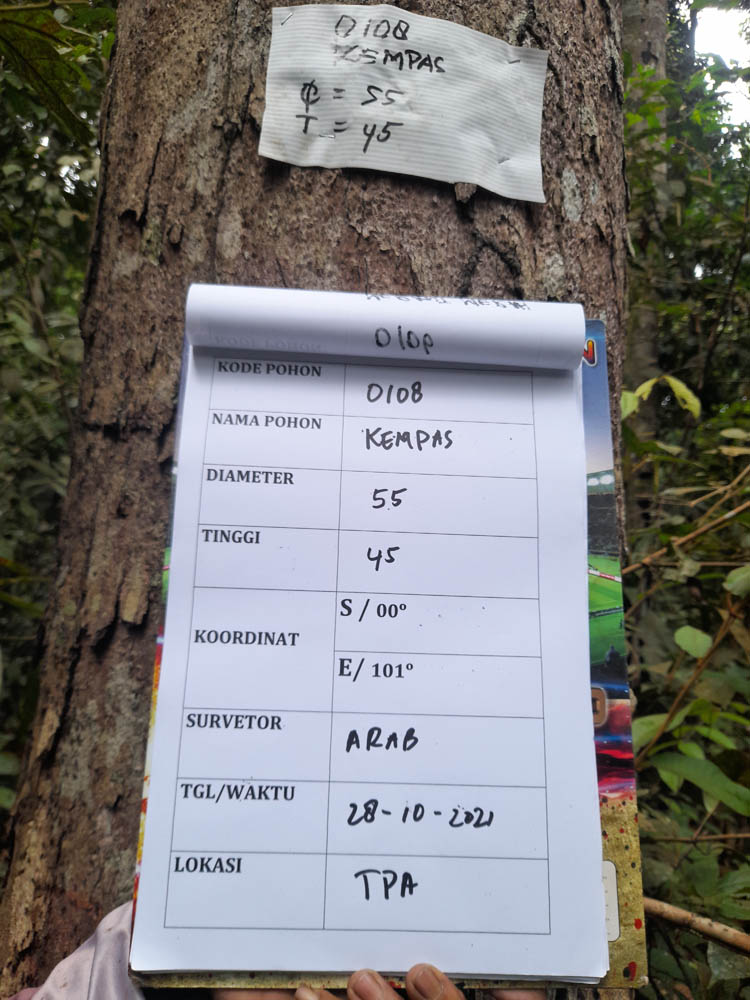 0108
KEMPAS
₵ = 55
T = 45
010P
KODE POHON 0108
NAMA POHON KEMPAS
DIAMETER 55
TINGGI 45
KOORDINAT
S / 00°
E/ 101°
SURVETOR ARAB
TGL/WAKTU 28-10-2021
LOKASI TPA